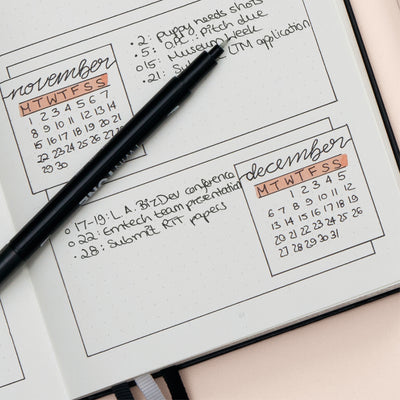 november
M T W T F S S
1 2 3 4 5 6 7
8 9 10 11 12 13 14
15 16 17 18 19 20 21
22 23 24 25 26 27 28
29 30
• 2: Puppy needs shots
• 5: Pitch due
o 15: Museum Week
• 21: UTM application
december
M T W T F S S
1 2 3 4 5
6 7 8 9 10 11 12
13 14 15 16 17 18 19
20 21 22 23 24 25 26
27 28 29 30 31
o 17-19: L.A. BizDev conference
o 22: Emtech team presentation
• 28: Submit papers